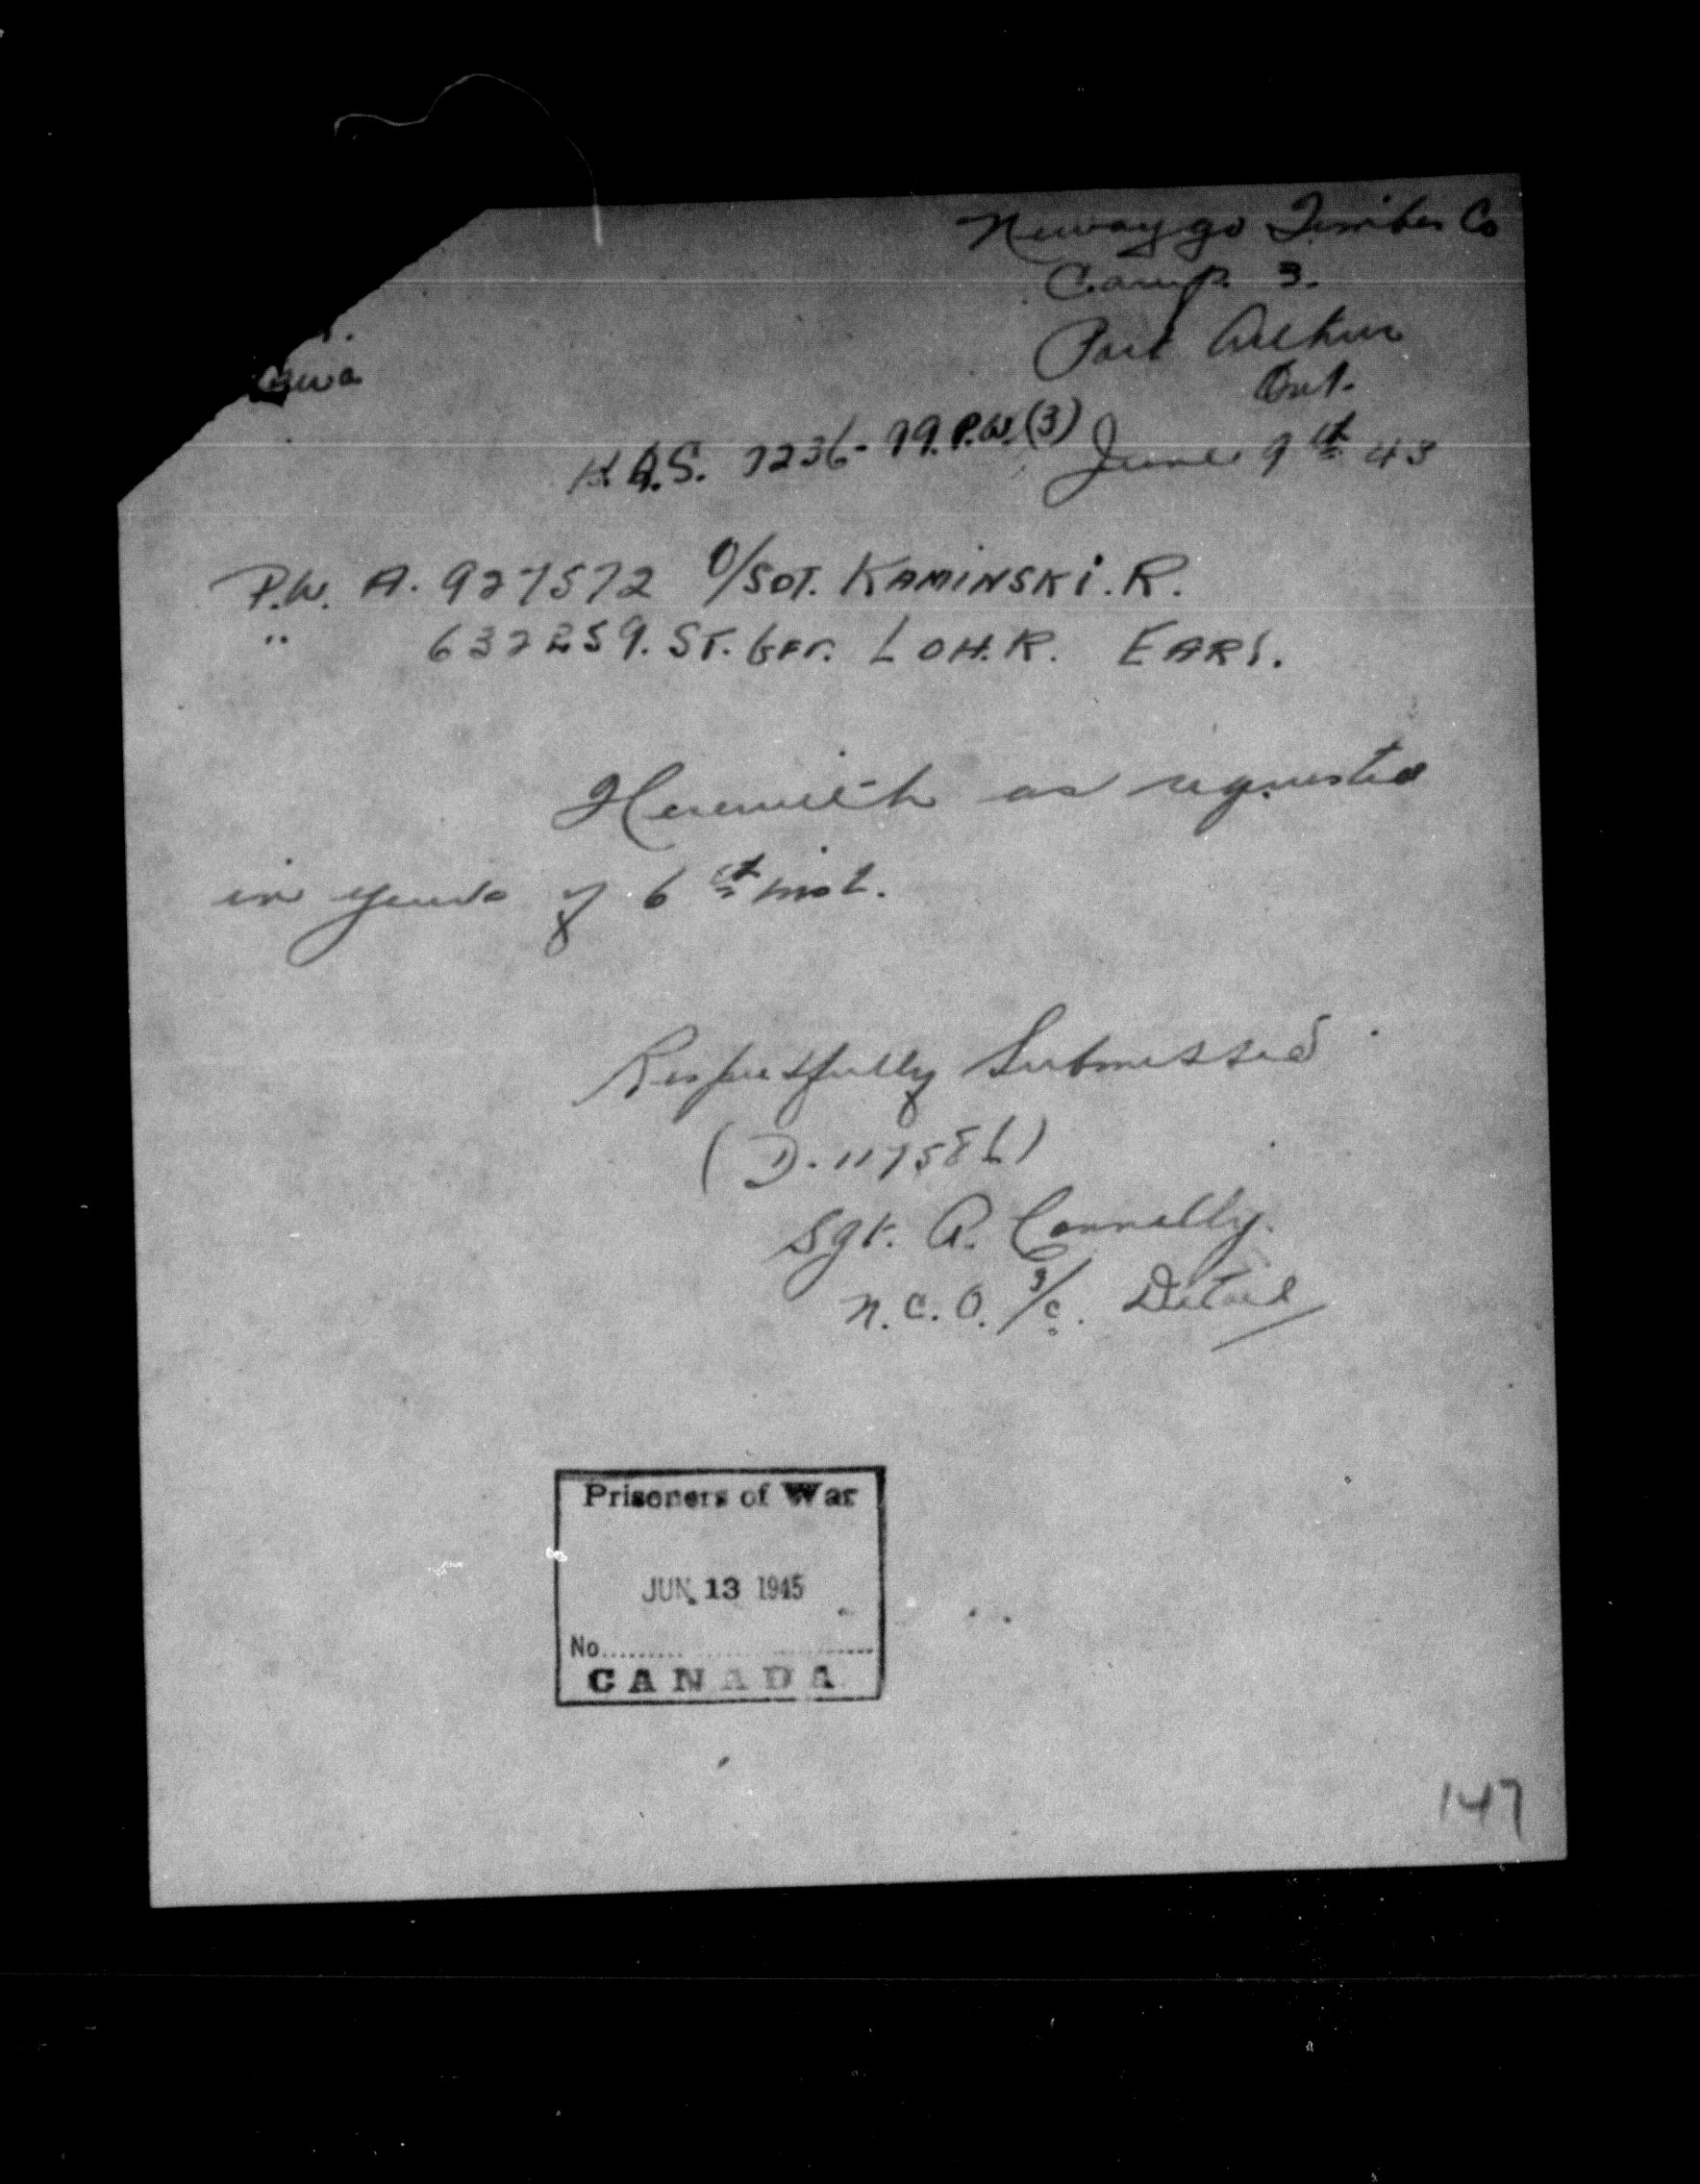 Newaygo Timber Co
Camp. 3.
Port Arthur
Ont.
H.Q.S. 7236-79.P.W.(3)
June 9th 45
P.W. A. 927572 O/SDT. KAMINSKI. R.
" 632259. ST. GFR. LOH. R. EARS.
Herewith as requested
in yours of 6th inst.
Respectfully Submitted
(D. 117586)
Sgt. A. Connelly.
N.C.O. I/C. Detail
Prisoners of War
JUN. 13 1945
No
CANADA
147